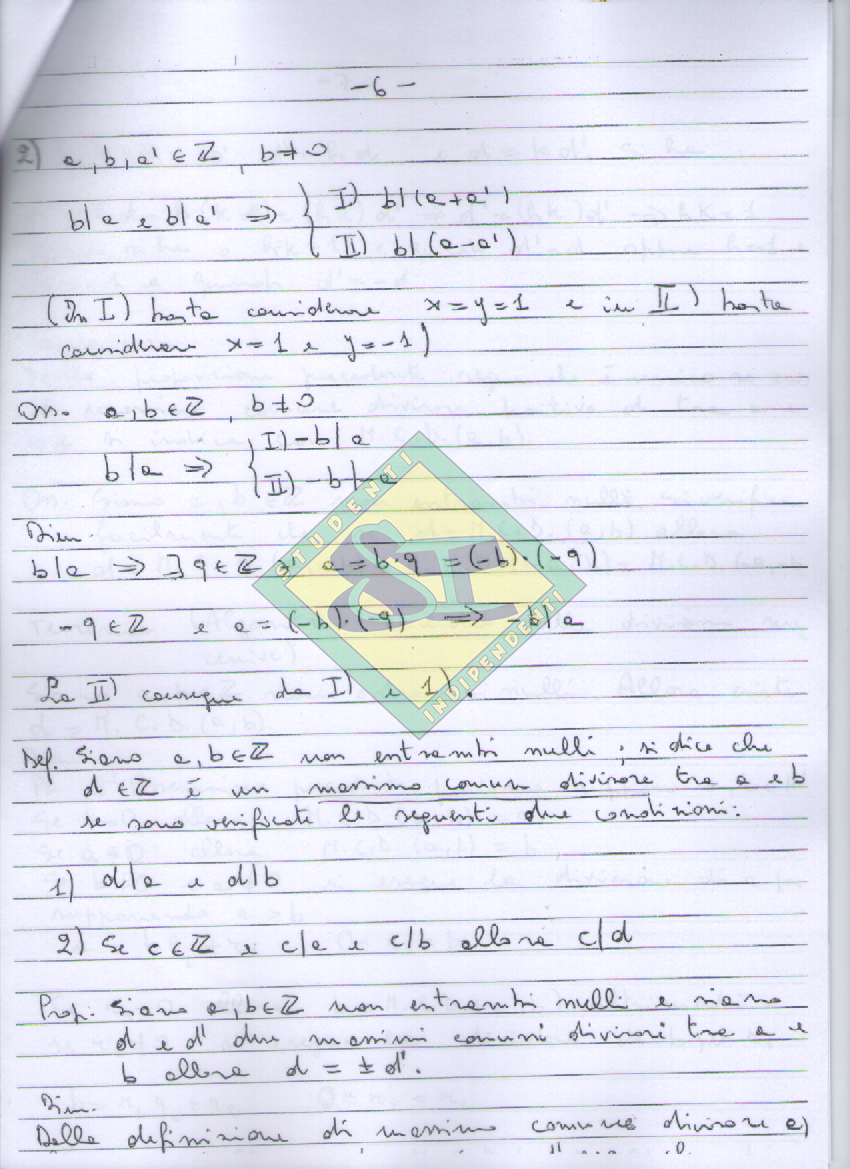 -6-
2) a, b, a' ∈ ℤ , b ≠ 0
b|a e b|a' ⇒ { I) b|(a+a')
II) b|(a-a')
(In I) basta considerare x=y=1 e in II) basta
considerare x=1 e y=-1)
Oss. a, b ∈ ℤ , b ≠ 0
b|a ⇒ { I) -b|a
II) -b|-a
Dim.
b|a ⇒ ∃ q ∈ ℤ ∋' a = b·q = (-b)·(-q)
-q ∈ ℤ e a = (-b)·(-q) ⇒ -b|a
La II) consegue da I) e 1).
STUDENTI
SI
INDIPENDENTI
Def. Siano a, b ∈ ℤ non entrambi nulli ; si dice che
d ∈ ℤ è un massimo comun divisore tra a e b
se sono verificate le seguenti due condizioni:
1) d|a e d|b
2) Se c ∈ ℤ e c|a e c|b allora c|d
Prop. Siano a, b ∈ ℤ non entrambi nulli e siano
d e d' due massimi comuni divisori tra a e
b allora d = ± d'.
Dim.
Dalla definizione di massimo comune divisore a)